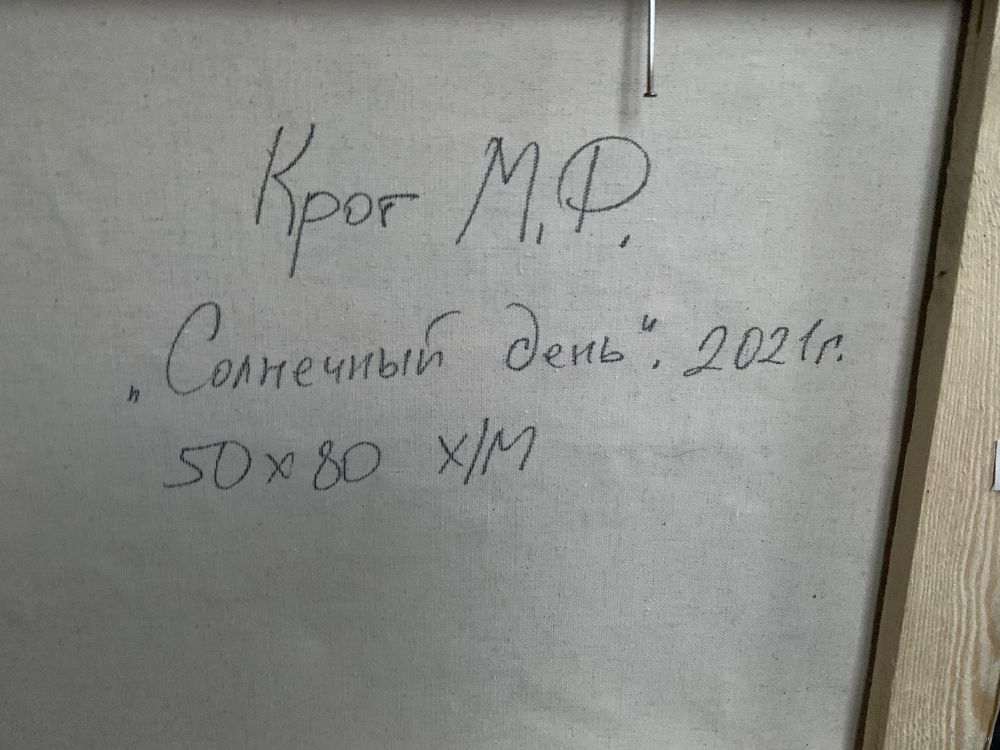 Крог М.Ф.
„Солнечный день". 2021г.
50х80 х/м